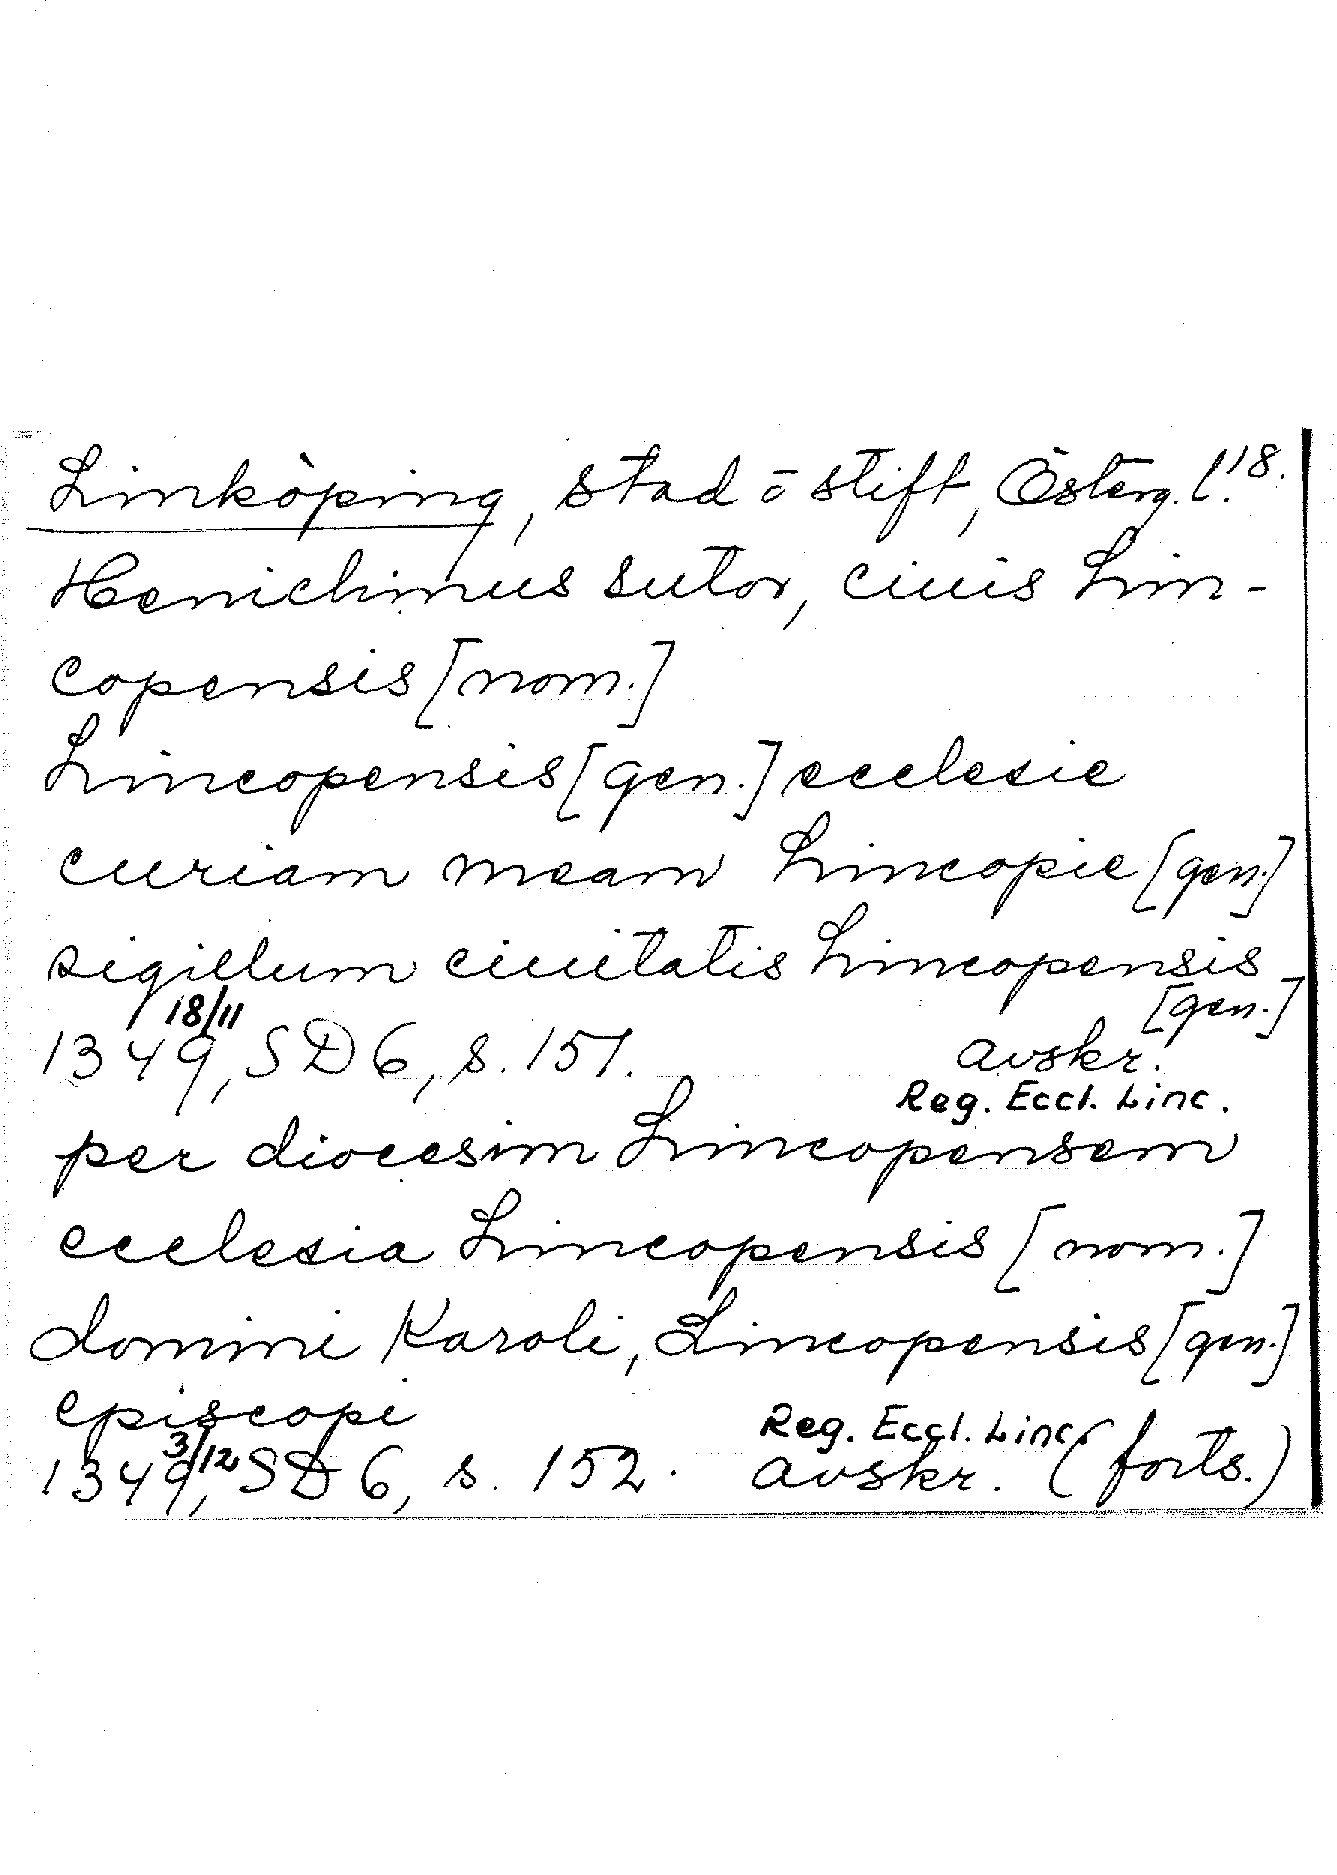 Linköping, stad o stift, Österg. l. 18.
Henichinus sutor, ciuis Lin-
copensis [nom.]
Lincopensis [gen.] ecclesie
curiam meam Lincopie [gen.]
sigillum ciuitatis Lincopensis
[gen.]
1349 18/11, SD 6, s. 151. avskr.
Reg. Eccl. Linc.
per diocesim Lincopensem
ecclesia Lincopensis [nom.]
domini Karoli, Lincopensis [gen.]
episcopi
Reg. Eccl. Linc.
1349 3/12, SD 6, s. 152. avskr. (forts.)